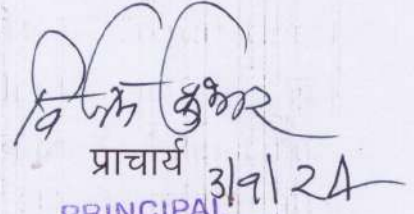 कुमार
प्राचार्य
3/9/24
PRINCIPAL